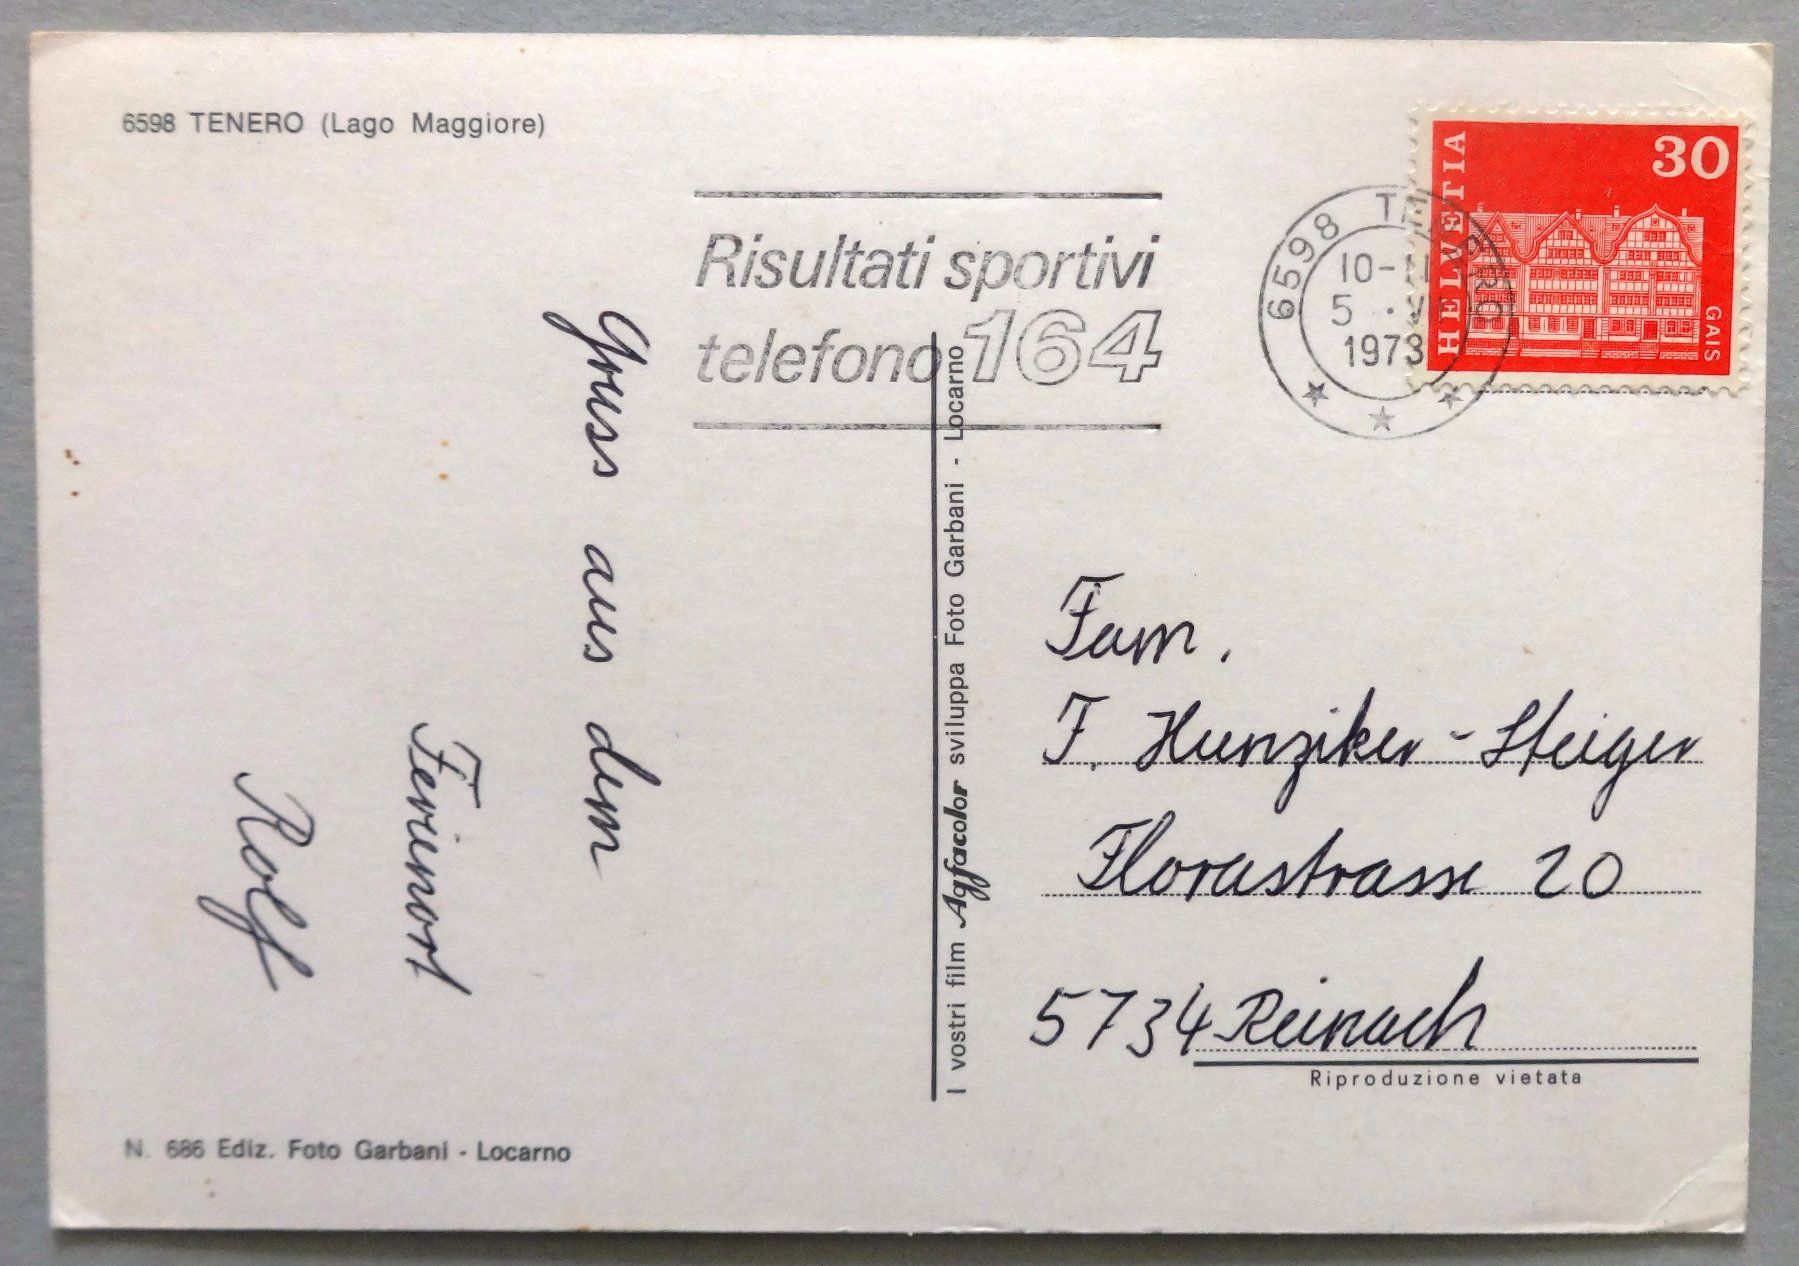 6598 TENERO (Lago Maggiore)
Risultati sportivi
telefono 164
6598 TENERO
10-11
5
1973
HELVETIA
30
GAIS
Gruss aus dem
Ferienort
Rolf
I vostri film Agfacolor sviluppa Foto Garbani - Locarno
Fam.
F. Hunziker-Steiger
Florastrasse 20
5734 Reinach
Riproduzione vietata
N. 686 Ediz. Foto Garbani - Locarno